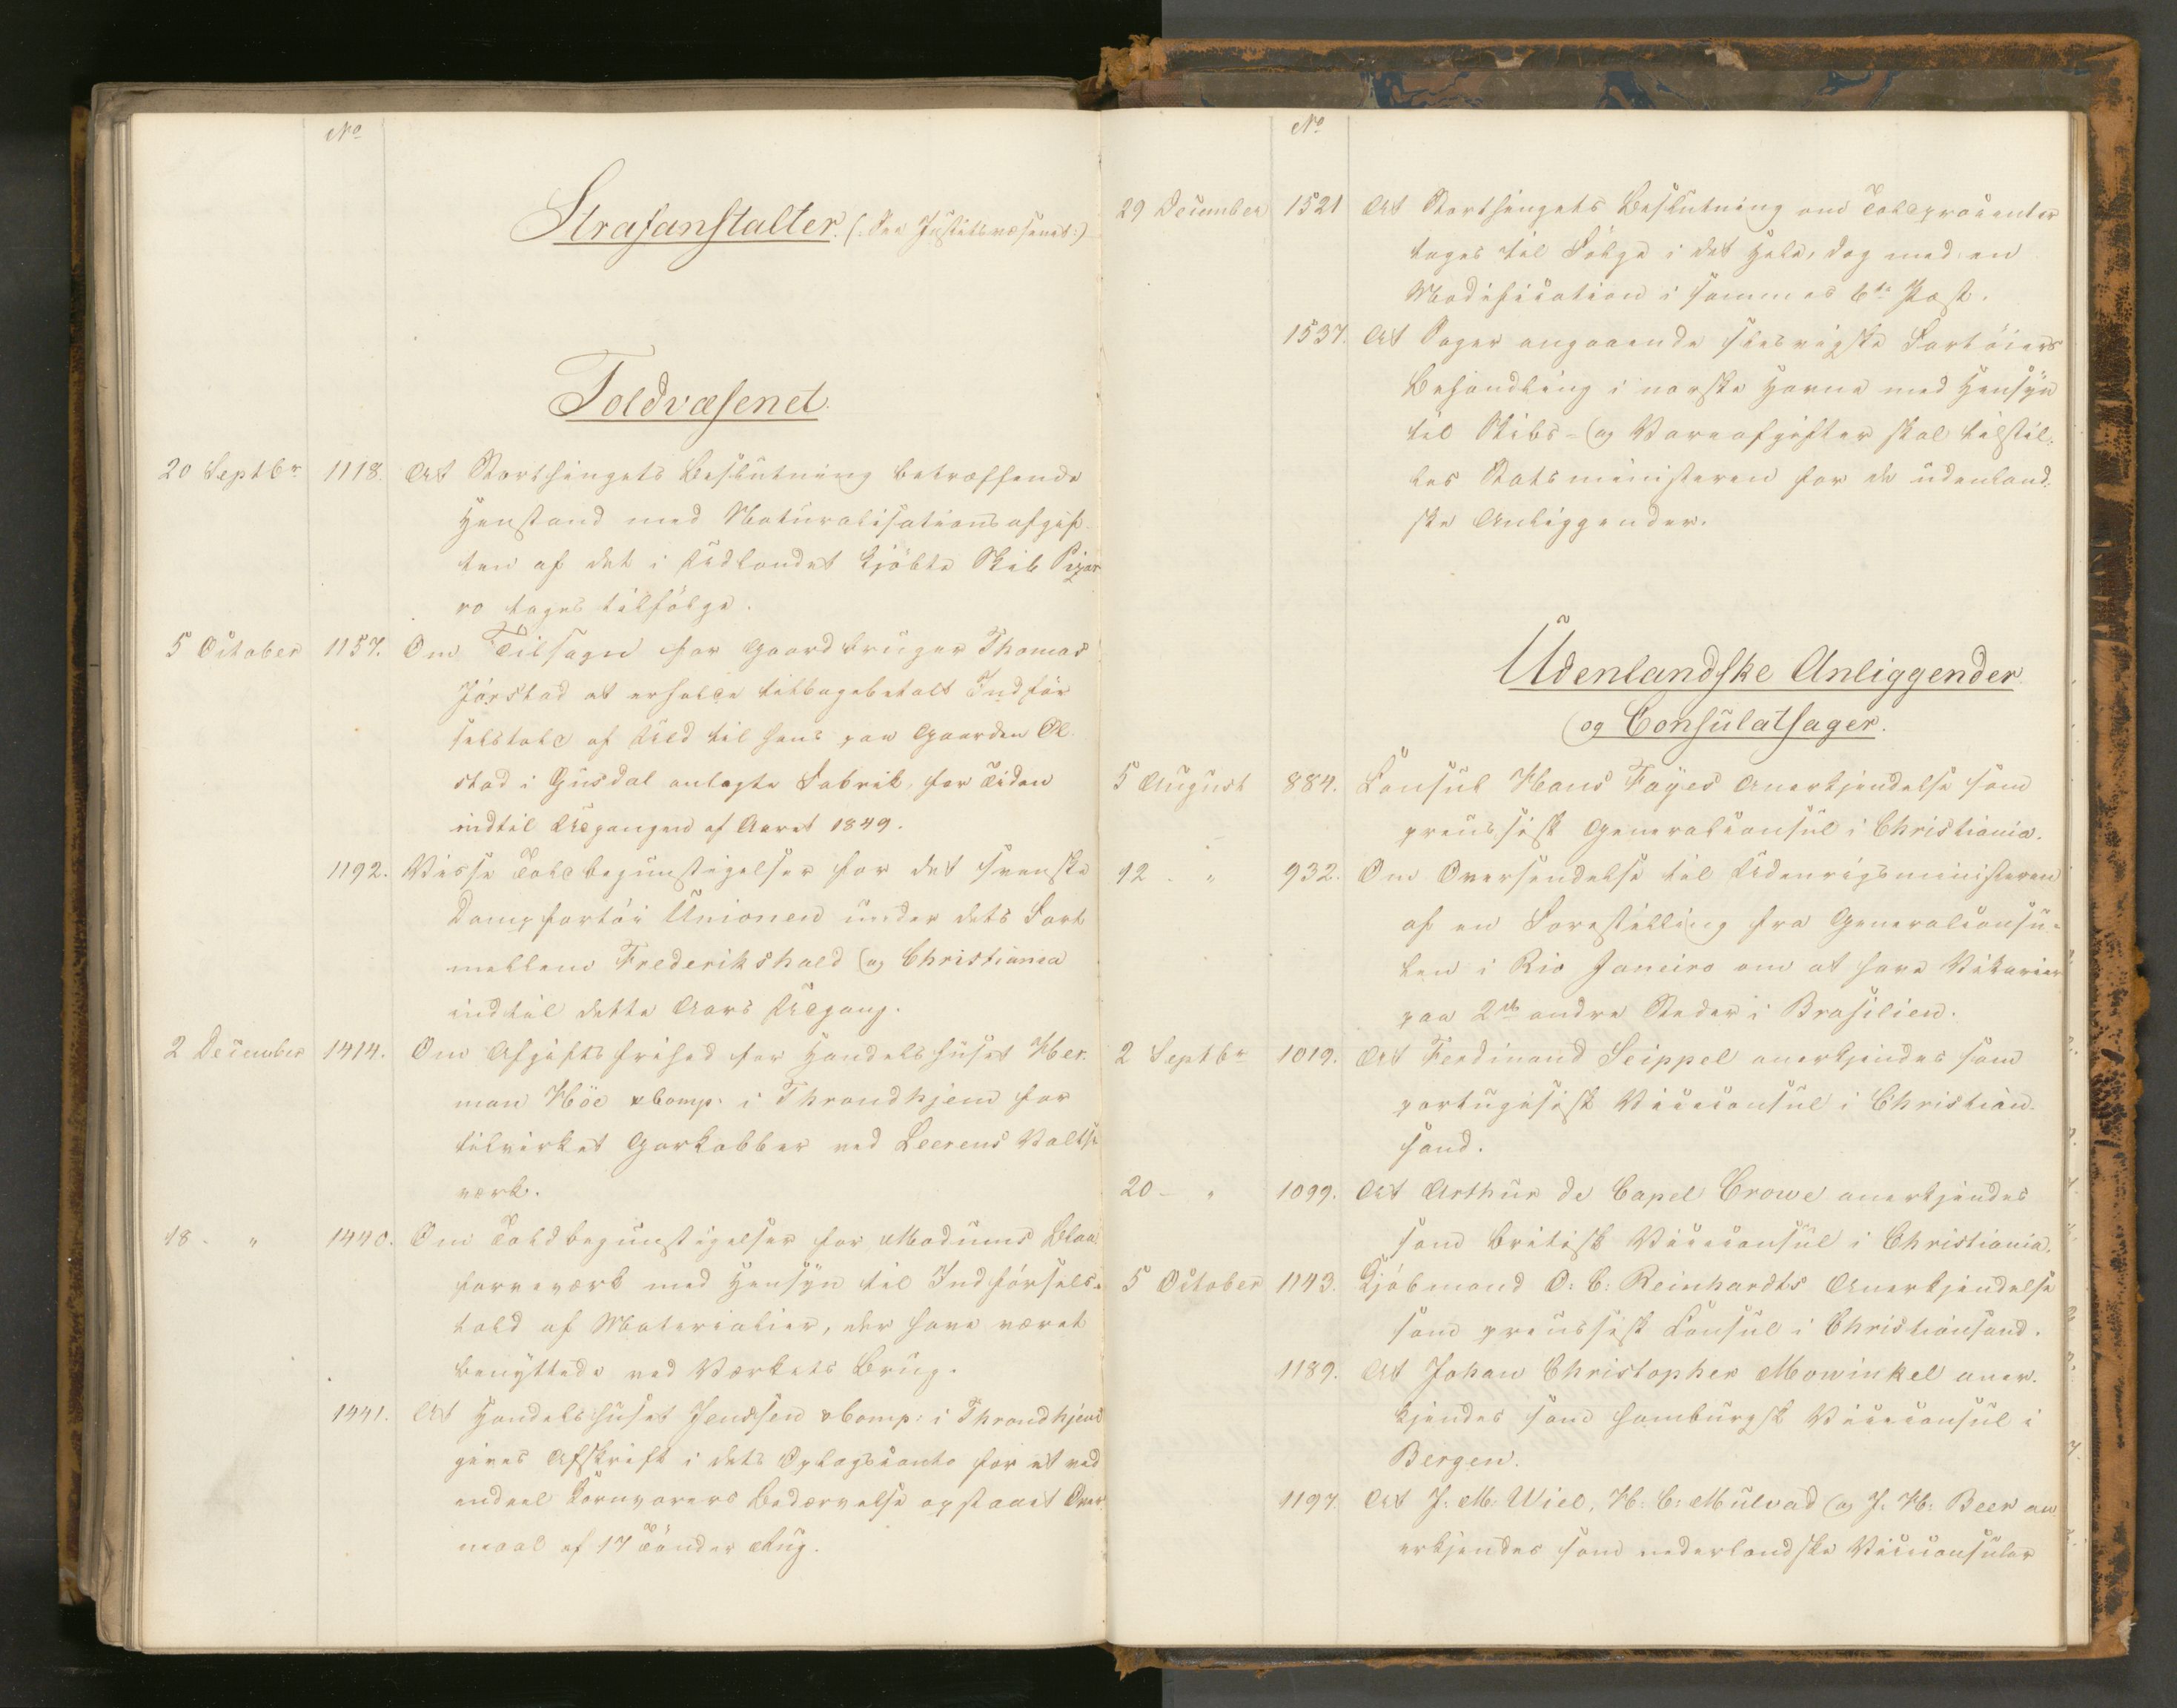 No
Strafanstalter. (: See Justitsvæsenet :)
Toldvæsenet.
20 Septbr 1118. At Storthingets Beslutning betræffende
Henstand med Naturalisationsafgif-
ten af det i Udlandet kjöbte Skib Pizar
ro tages tilfölge.
5 October 1157. Om Tilsagn for Gaardbruger Thomas
Jörstad at erholde tilbagebetalt Indför
selstold af Uld til hans paa Gaarden Ol
stad i Gusdal anlagte Fabrik, for Tiden
indtil Udgangen af Aaret 1849.
1192. Visse Toldbegunstigelser for det svenske
Dampfartöi Unionen under dets Fart
mellem Frederikshald og Christiania
indtil dette Aars Udgang.
2 December 1414. Om Afgiftsfrihed for Handelshuset Her-
man Höe & Comp: i Throndhjem for
tilvirket Garkobber ved Leerens Valtse
værk.
18 - " 1440. Om Toldbegunstigelser for Modums Blaa
farveværk med Hensyn til Indförsels-
told af Materialier, der have været
benyttede ved Værkets Brug.
1441. At Handelshuset Jenssen & Comp: i Throndhjem
gives Afskrift i dets Oplagsconto for et ved
endeel Kornvarers Bedærvelse opstaaet Over
maal af 17 Tönder Rug.
No
29 December 1521 At Storthingets Beslutning om Toldprocenter
tages til Fölge i det Hele, dog med en
Modification i sammes 6te Post.
1537. At Sager angaaende slesvigske Fartöiers
Behandling i norske Havne med Hensyn
til Skibs- og Vareafgifter skal tilstil-
les Statsministeren for de udenland-
ske Anliggender.
Udenlandske Anliggender
og Consulatsager.
5 August 884. Consul Hans Fayes Anerkjendelse som
preussisk Generalconsul i Christiania.
12 - " 932. Om Oversendelse til Udenrigsministeren
af en Forestilling fra Generalconsu-
len i Rio Janeiro om at have Vikarier
paa 2de andre Steder i Brasilien.
2 Septbr 1019. At Ferdinand Seippel anerkjendes som
portugisisk Viceconsul i Christian-
sand.
20 - " 1099. At Arthur de Capel Crowe anerkjendes
som britisk Viceconsul i Christiania.
5 October 1143. Kjöbmand O. C. Reinhardts Anerkjendelse
som preussisk Consul i Christiansand.
1189. At Johan Christopher Mowinkel aner-
kjendes som hamburgsk Viceconsul i
Bergen.
1197. At J. M. Wiel, H. C. Mulvad og J. H. Beer an
erkjendes som nederlandske Viceconsuler